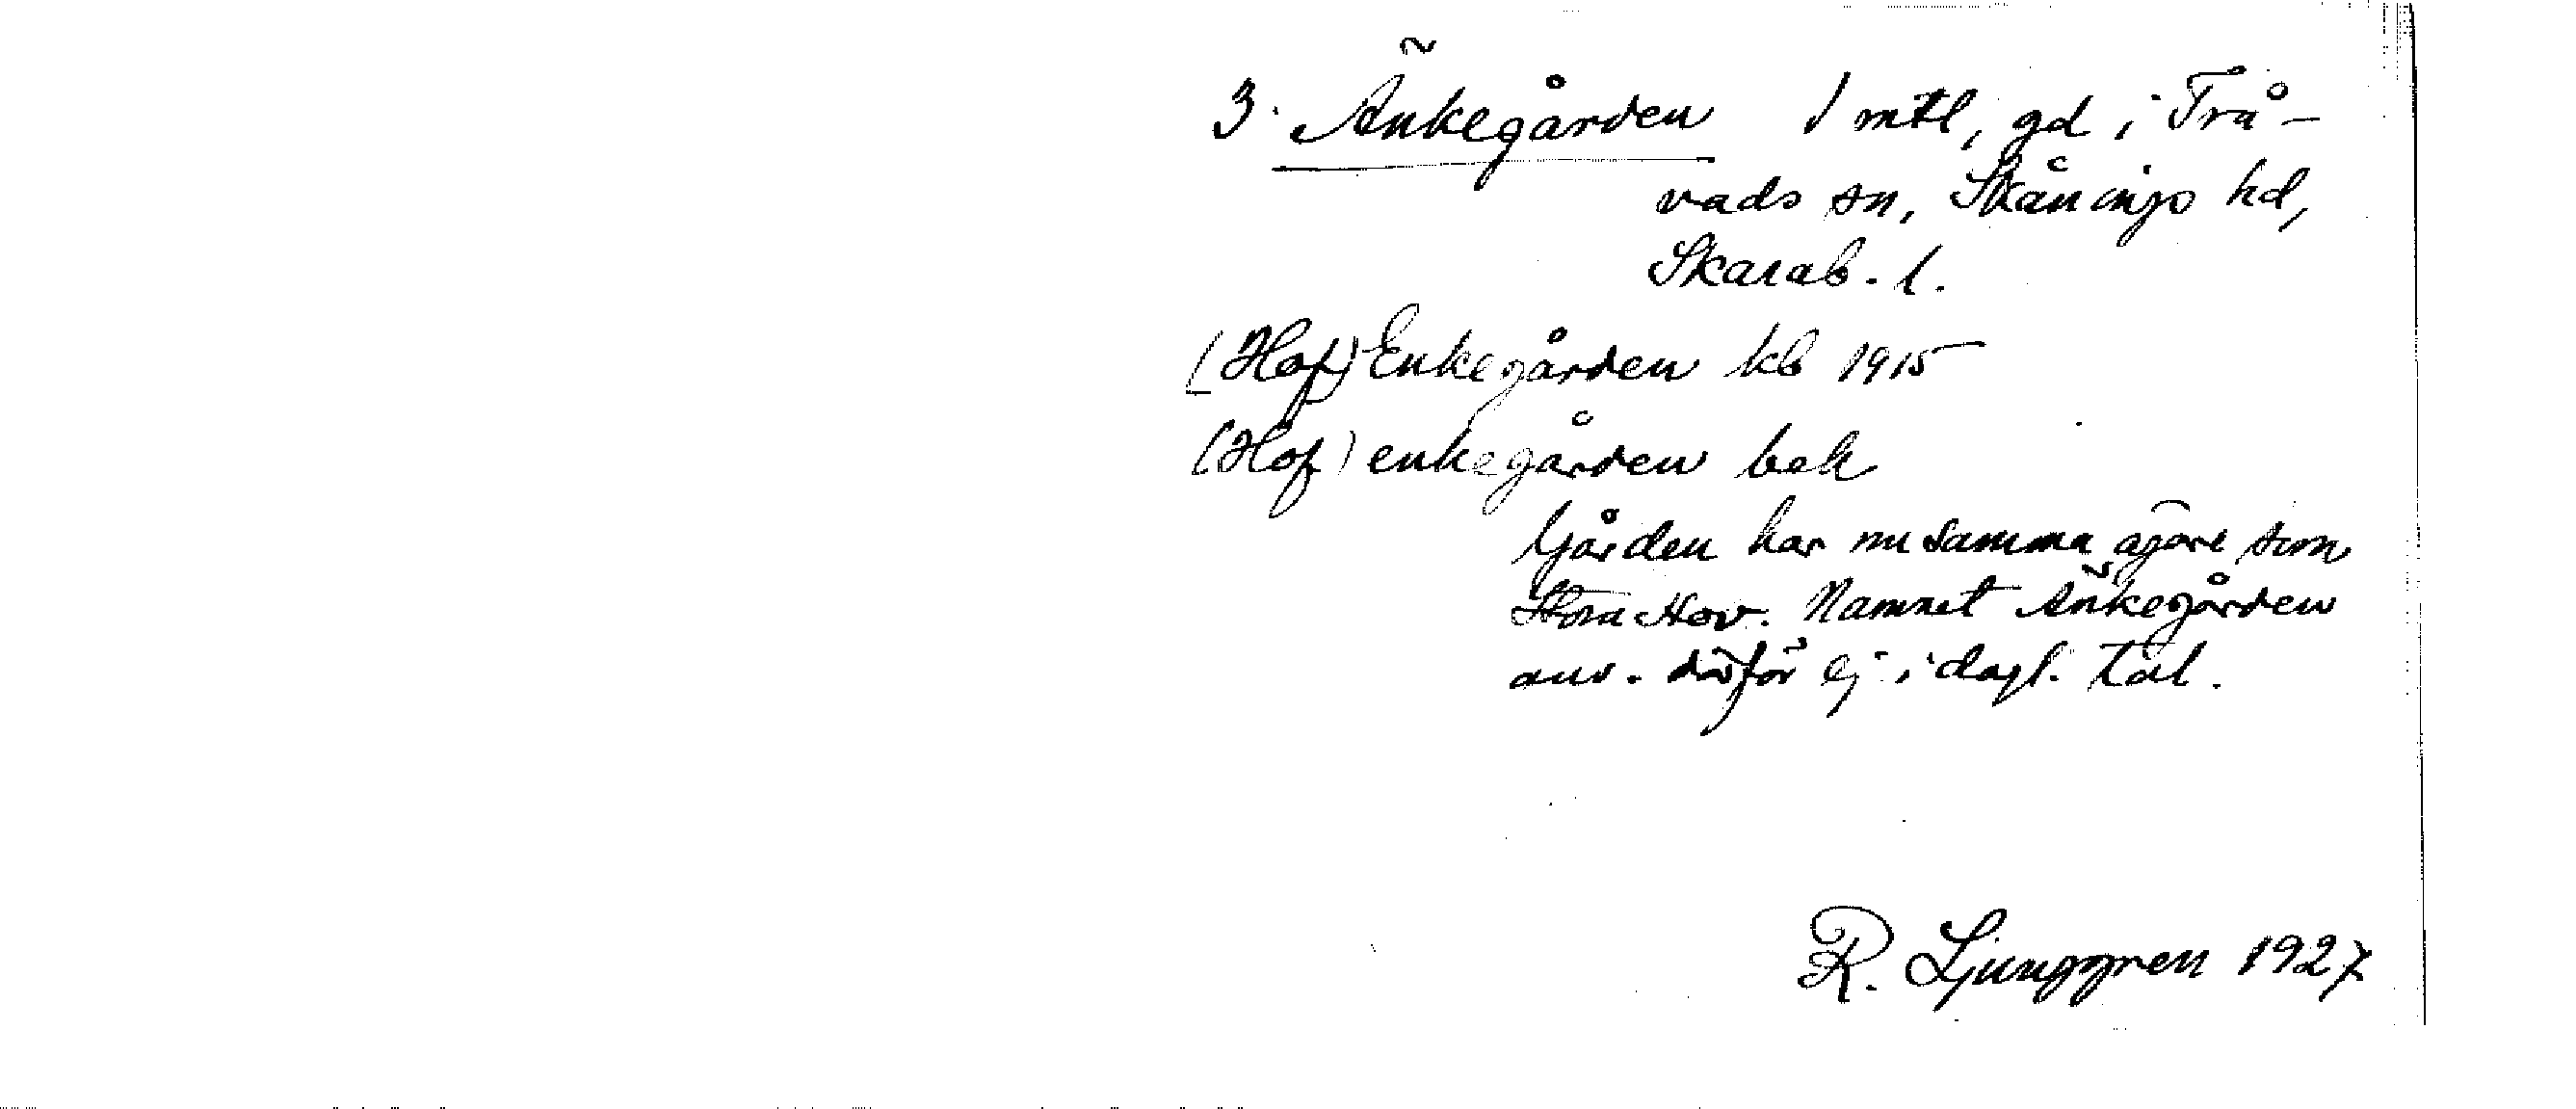 3. Änkegården 1 mtl, gd i Trå-
vads sn, Skånings hd,
Skarab. l.
(Hof) Enkegården kb 1915
(Hof) enkegården bek
Gården har nu samma ägare som
Stora Hov. Namnet Änkegården
anv. därför ej i dagl. tal.
R. Ljunggren 1927